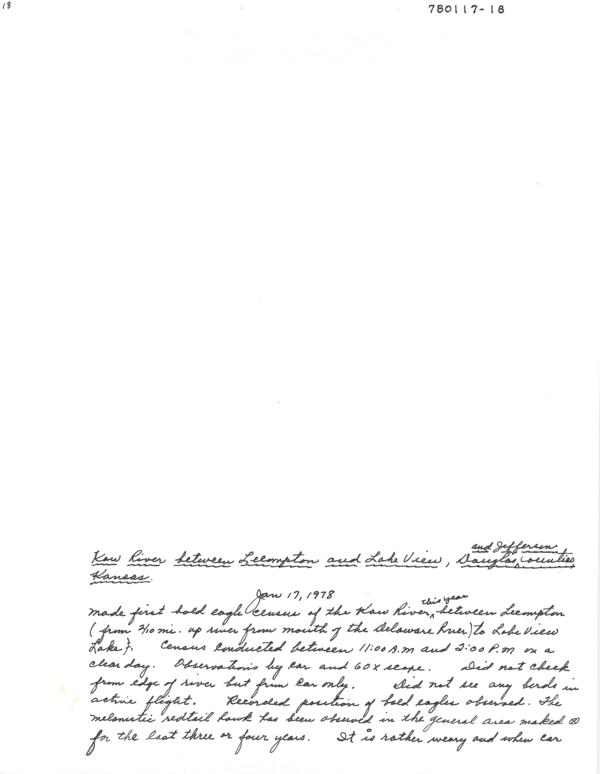 18
780117-18
and Jefferson
Kaw River between Lecompton and Lake View, Douglas, Counties,
Kansas.
Jan 17, 1978
this year
made first bald eagle census of the Kaw River, between Lecompton
(from 2/10 mi. up river from mouth of the Delaware River) to Lake View
Lake). Census conducted between 11:00 A.M and 2:00 P.M on a
clear day. Observations by car and 60x scope. Did not check
from edge of river but from car only. Did not see any birds in
active flight. Recorded position of bald eagles observed. The
melanistic redtail hawk has been observed in the general area marked
for the last three or four years. It is rather weary and when car